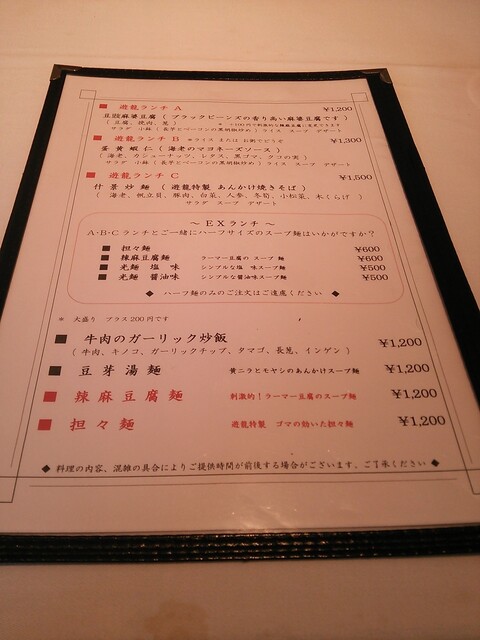 ■ 遊龍ランチ A ¥1,200
豆豉麻婆豆腐 ( ブラックビーンズの香り高い麻婆豆腐です )
( 豆腐、挽肉、葱 )
サラダ 小鉢 ( 長芋とベーコンの黒胡椒炒め ) ライス スープ デザート
■ 遊龍ランチ B ※ライス または お粥でどうぞ ¥1,300
蛋黄蝦仁 ( 海老のマヨネーズソース )
( 海老、カシューナッツ、レタス、黒ゴマ、クコの実 )
サラダ 小鉢 ( 長芋とベーコンの黒胡椒炒め ) ライス スープ デザート
■ 遊龍ランチ C ¥1,500
什景炒麺 ( 遊龍特製 あんかけ焼きそば )
( 海老、帆立貝、豚肉、白菜、人参、冬筍、小松菜、木くらげ )
サラダ スープ デザート
～ EXランチ ～
A・B・Cランチとご一緒にハーフサイズのスープ麺はいかがですか?
■ 担々麺 ¥600
■ 辣麻豆腐麺 ラーマー豆腐の スープ 麺 ¥600
■ 光麺 塩 味 シンプルな塩 味スープ麺 ¥500
■ 光麺 醤油味 シンプルな醤油味スープ麺 ¥500
◆ ハーフ麺のみのご注文はご遠慮ください ◆
※ 大盛り プラス200円です
■ 牛肉のガーリック炒飯 ¥1,200
( 牛肉、キノコ、ガーリックチップ、タマゴ、長葱、インゲン )
■ 豆芽湯麺 黄ニラとモヤシのあんかけスープ麺 ¥1,200
■ 辣麻豆腐麺 刺激的!ラーマー豆腐のスープ麺 ¥1,200
■ 担々麺 遊龍特製 ゴマの効いた担々麺 ¥1,200
◆ 料理の内容、混雑の具合によりご提供時間が前後する場合がございます。ご了承ください ◆